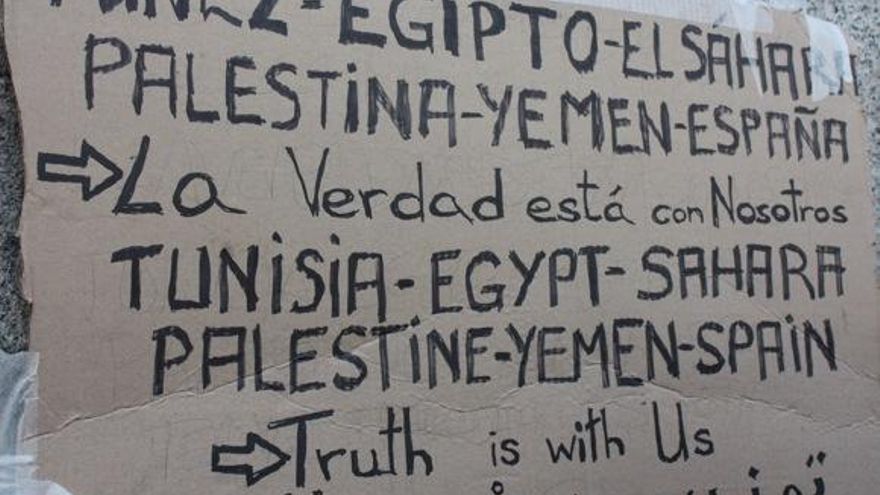 TÚNEZ-EGIPTO-EL SÁHARA
PALESTINA-YEMEN-ESPAÑA
⇨ La Verdad está con Nosotros
TUNISIA-EGYPT-SAHARA
PALESTINE-YEMEN-SPAIN
⇨ Truth is with Us